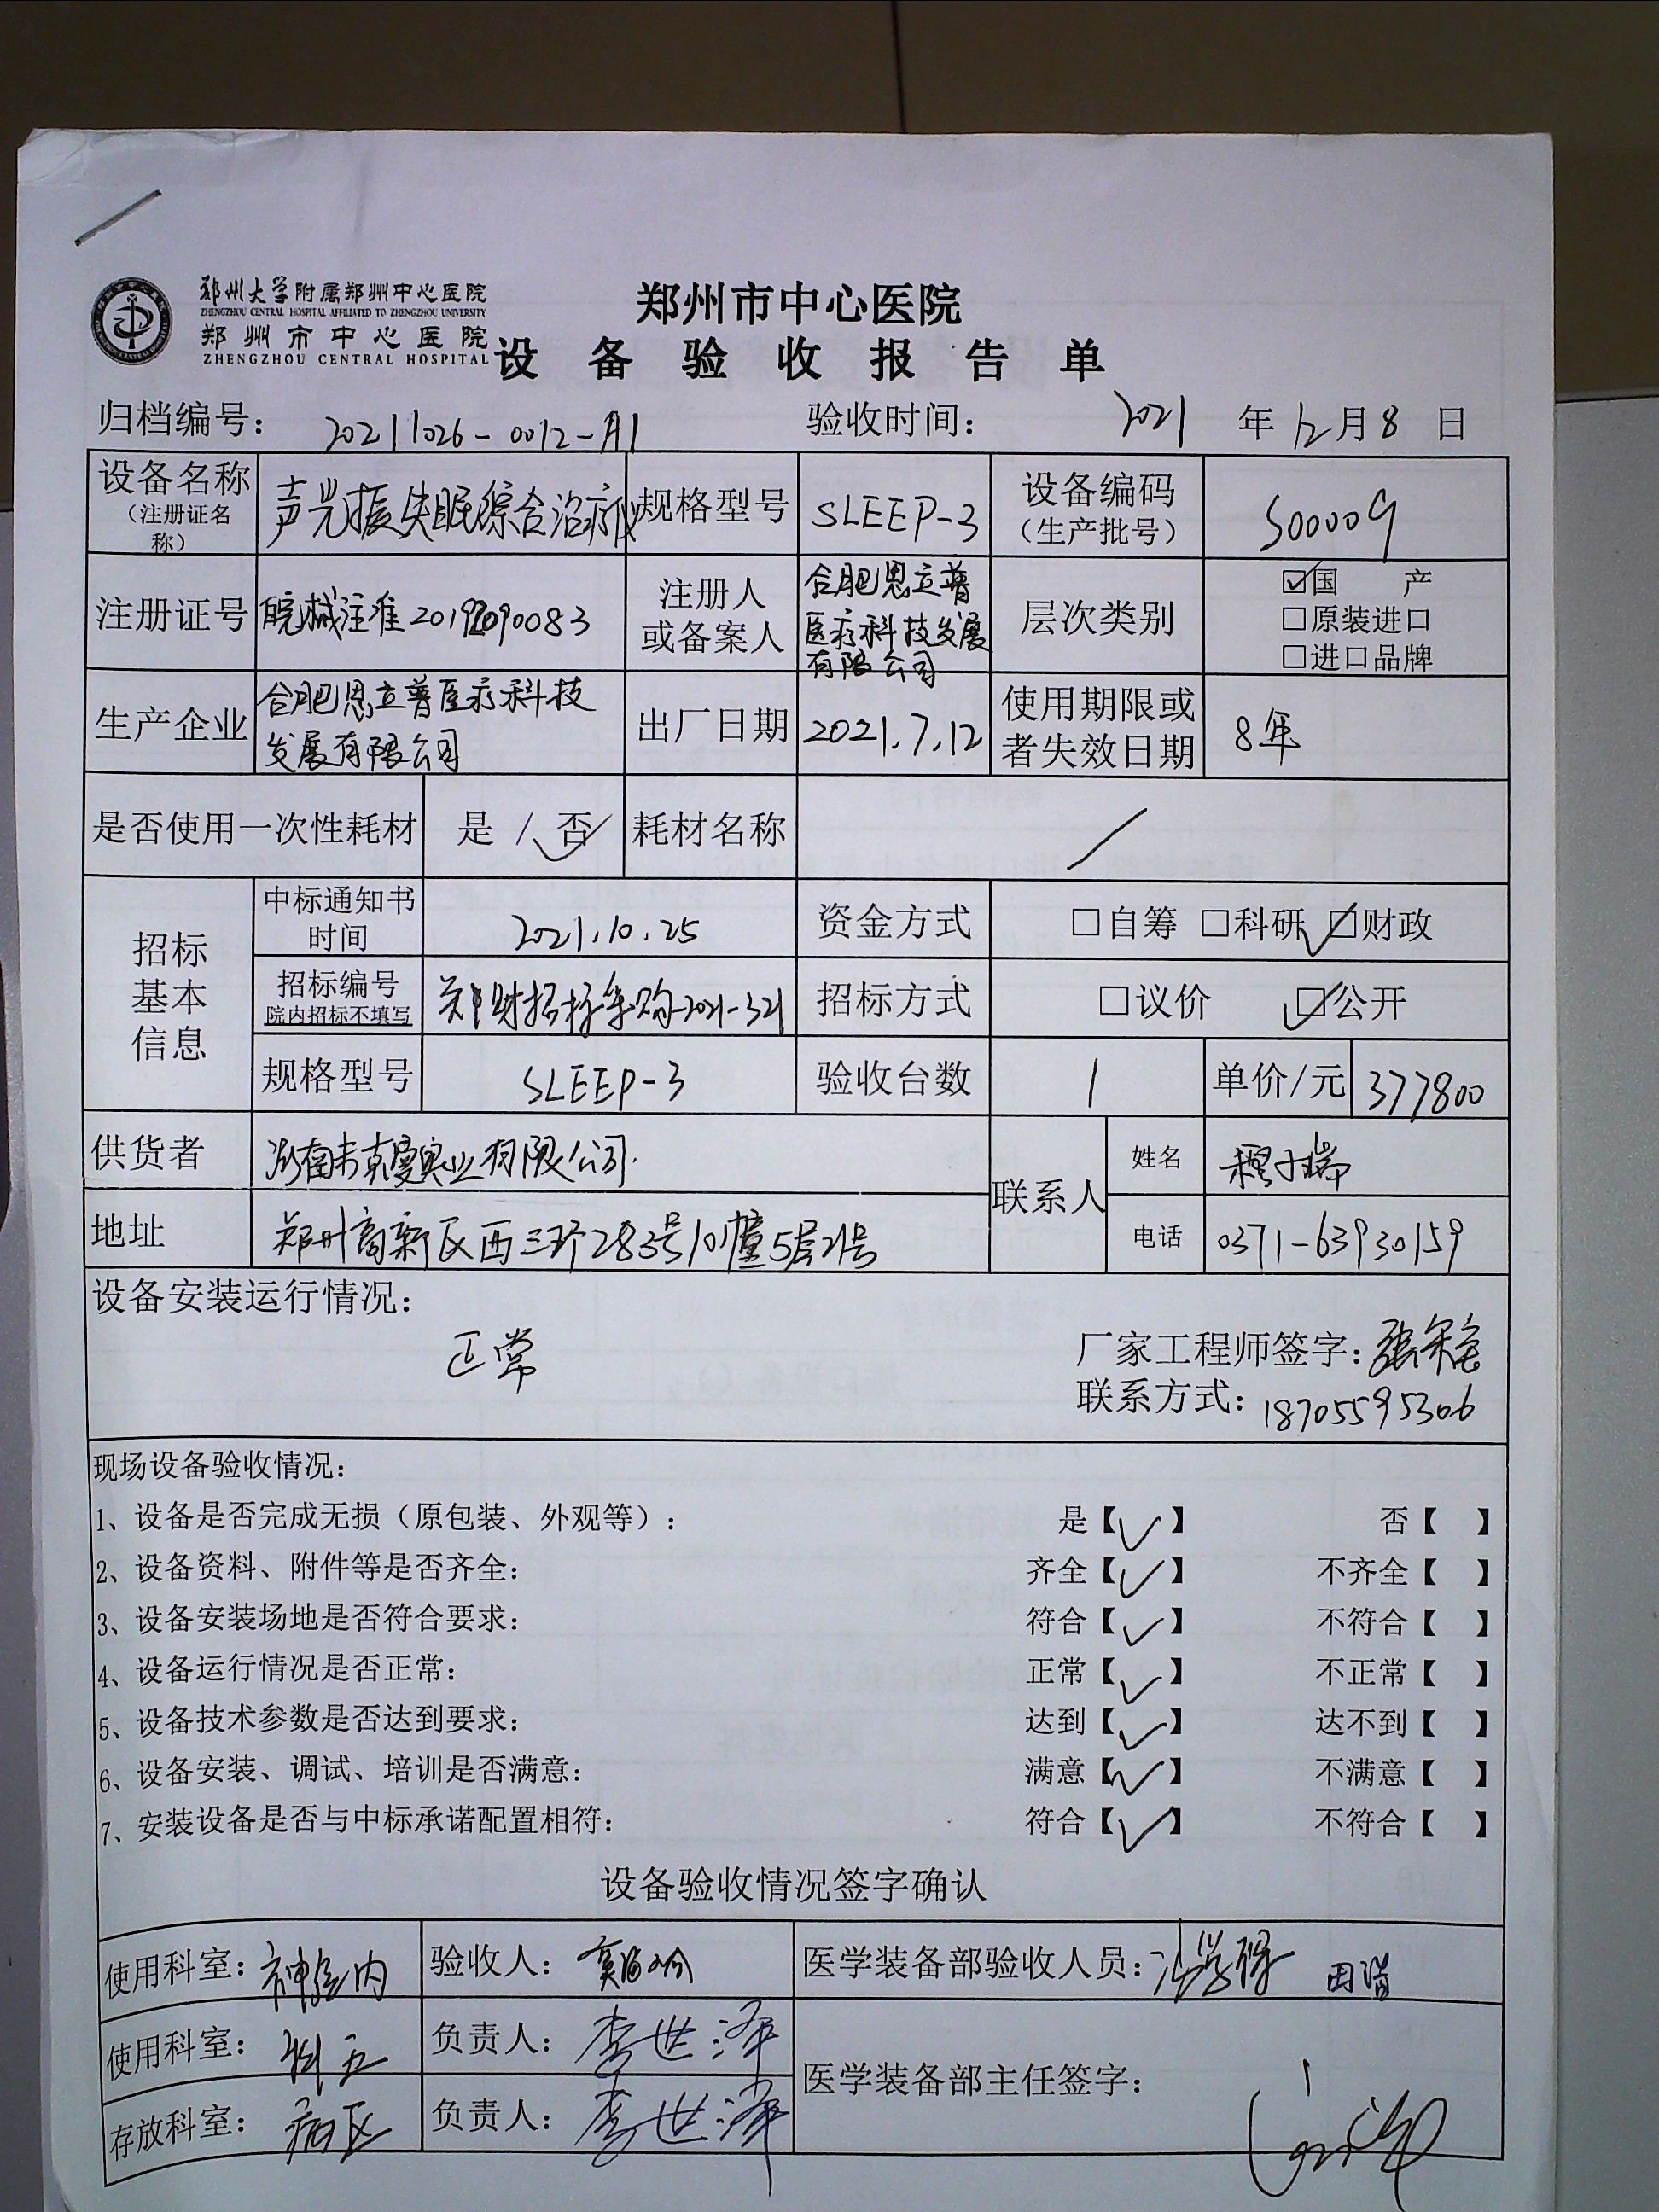 郑州大学附属郑州中心医院
ZHENGZHOU CENTRAL HOSPITAL AFFILIATED TO ZHENGZHOU UNIVERSITY
郑州市中心医院
ZHENGZHOU CENTRAL HOSPITAL
郑州市中心医院
设备验收报告单
归档编号: 20211026-0012-A1 验收时间: 2021 年 12 月 8 日
设备名称（注册证名称） 声光振失眠综合治疗仪 规格型号 SLEEP-3 设备编码（生产批号） S00009
注册证号 皖械注准20192090083 注册人或备案人 合肥恩立普医疗科技发展有限公司 层次类别 ☑国产
□原装进口
□进口品牌
生产企业 合肥恩立普医疗科技发展有限公司 出厂日期 2021.7.12 使用期限或者失效日期 8年
是否使用一次性耗材 是 / 否✓ 耗材名称 /
招标基本信息
中标通知书时间 2021.10.25 资金方式 □自筹 □科研 ☑财政
招标编号 院内招标不填写 郑财招标采购-2021-321 招标方式 □议价 ☑公开
规格型号 SLEEP-3 验收台数 1 单价/元 377800
供货者 有限公司. 联系人 姓名
地址 郑州高新区西三环283号10幢5层21号 电话 0371-63930159
设备安装运行情况:
正常
厂家工程师签字:
联系方式: 18705595306
现场设备验收情况:
1、设备是否完成无损（原包装、外观等）: 是【✓】 否【 】
2、设备资料、附件等是否齐全: 齐全【✓】 不齐全【 】
3、设备安装场地是否符合要求: 符合【✓】 不符合【 】
4、设备运行情况是否正常: 正常【✓】 不正常【 】
5、设备技术参数是否达到要求: 达到【✓】 达不到【 】
6、设备安装、调试、培训是否满意: 满意【✓】 不满意【 】
7、安装设备是否与中标承诺配置相符: 符合【✓】 不符合【 】
设备验收情况签字确认
使用科室: 神经内 验收人: 医学装备部验收人员:
使用科室: 科五 负责人: 李世泽
存放科室: 病区 负责人: 李世泽 医学装备部主任签字: